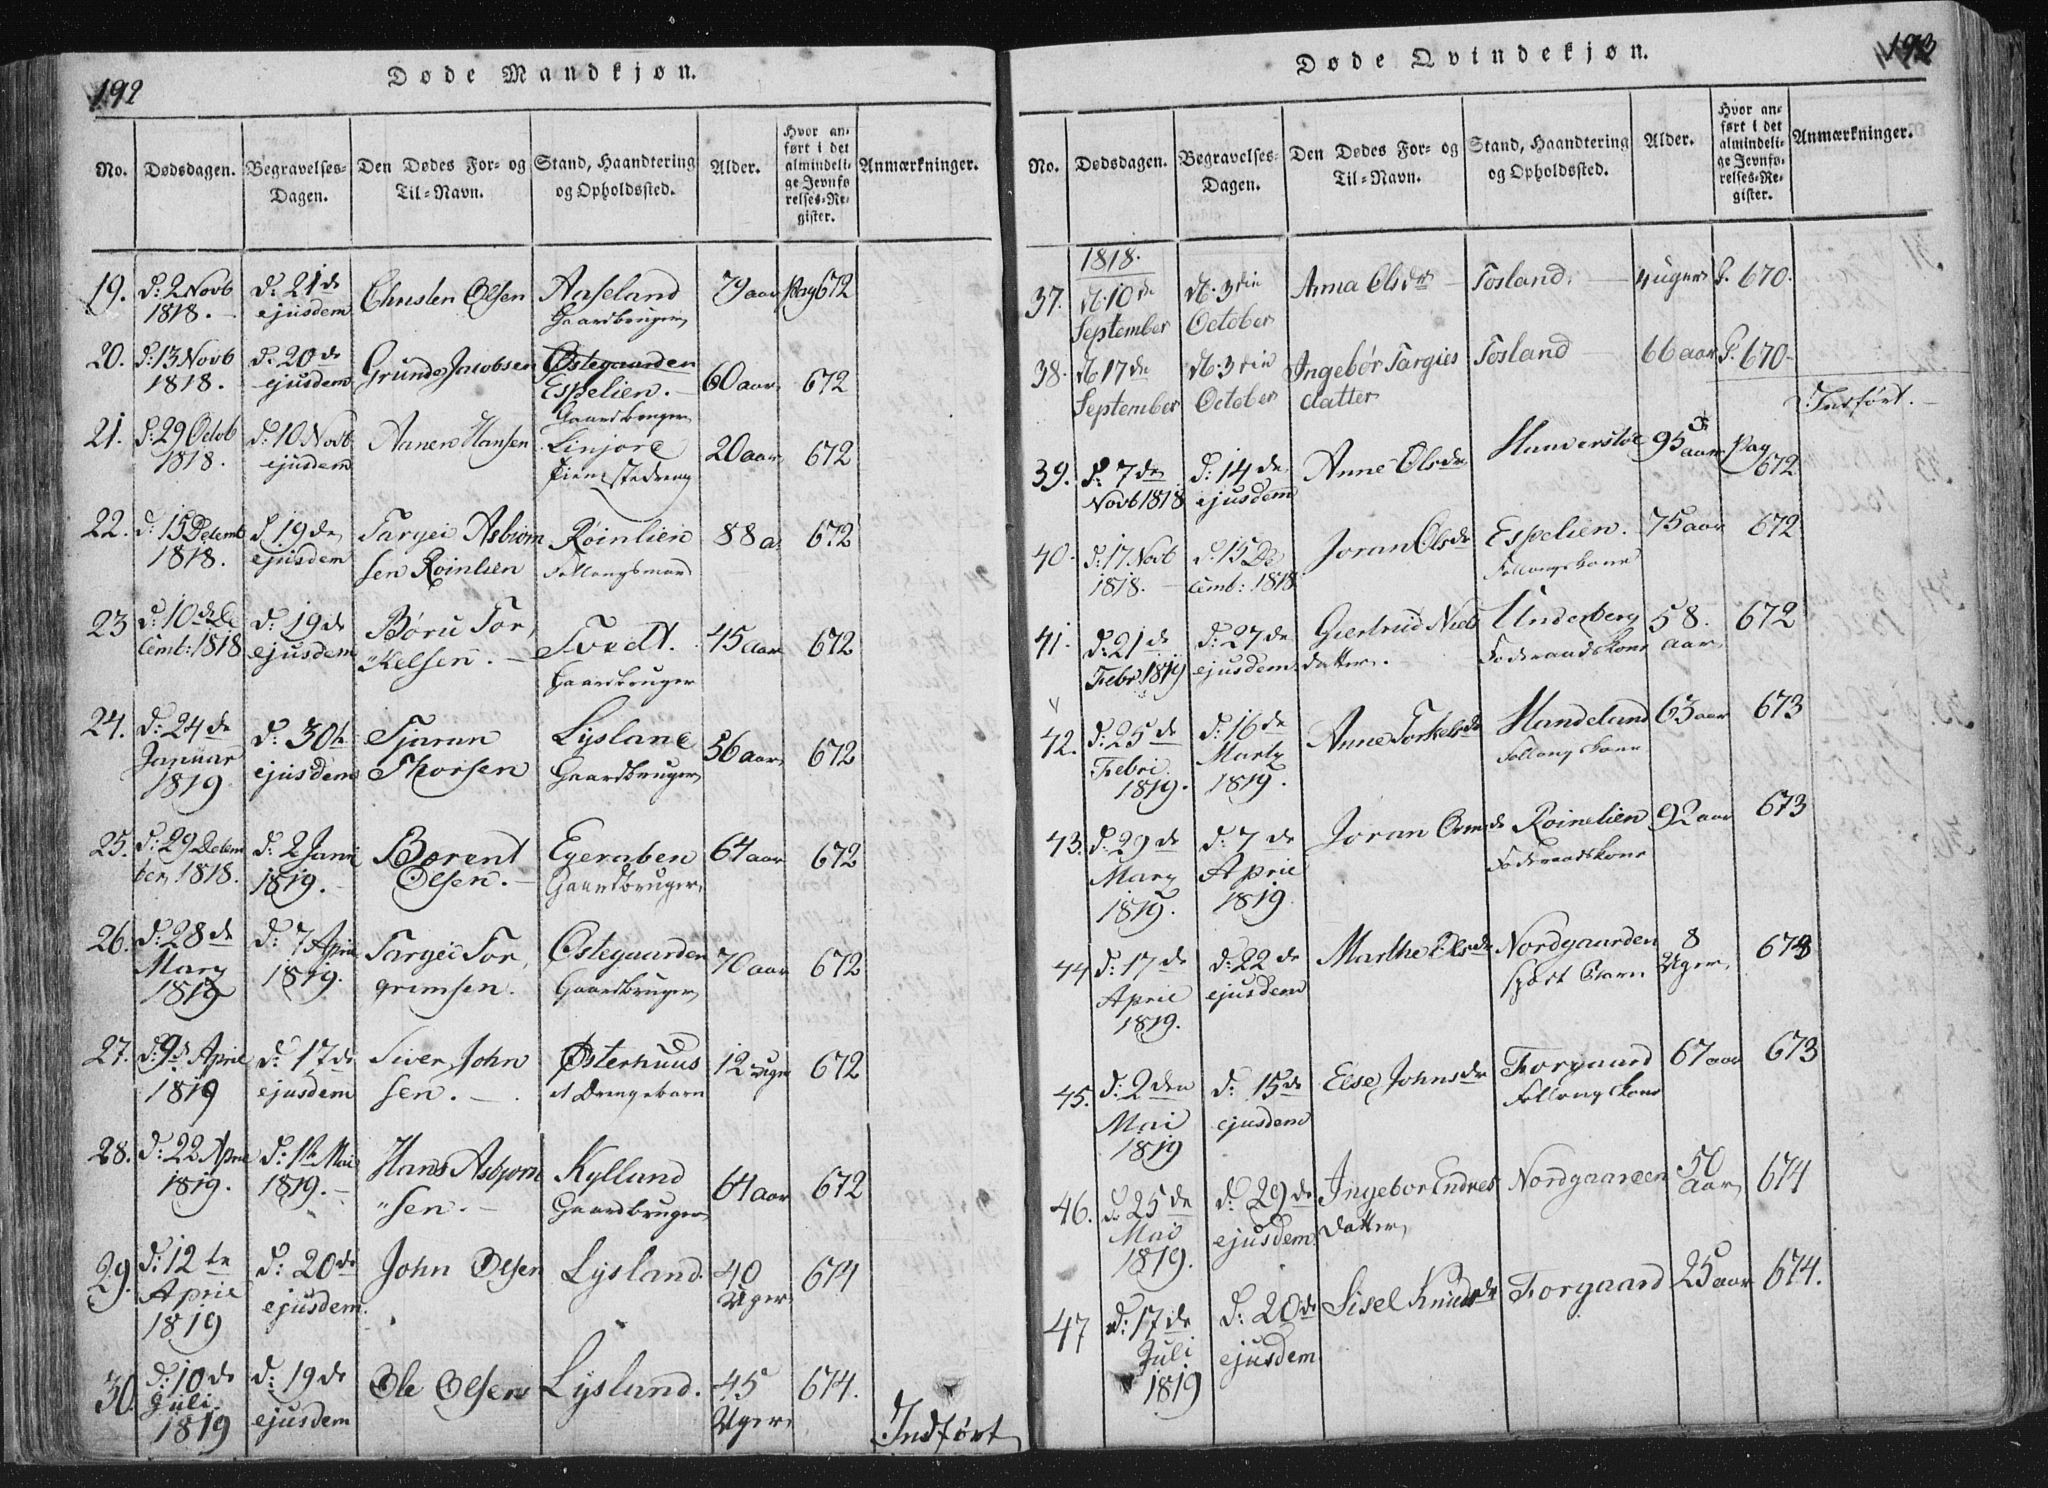 192
Døde Mandkjøn.
No. Dødsdagen. Begravelses-Dagen. Den Dødes For- og Til-Navn. Stand, Haandtering og Opholdssted. Alder. Hvor anført i det almindelige Jevnførelses-Register. Anmærkninger.
19. d: 2 Novb 1818. d: 21de ejusdem Christen Olsen Aaseland Gaardbruger 79 aar Pag 672
20. d: 13 Novb 1818. d: 20de ejusdem Grunde Jacobsen Østegaarden Espelien. Gaardbruger 60 aar 672
21. d: 29 Octob 1818. d: 10 Novb ejusdem Aanen Hansen Linjore Tienestedreng 20 aar 672
22. d: 15 Decemb 1818. d: 19de ejusdem Targei Asbiornsen Roinlien Røinlien Follaugsmand 88 a. 672
23 d: 10de Decemb: 1818 d: 19de ejusdem Børu Torkelsen. Tvedt. Gaardbruger 45 aar 672
24. d: 24de Januar 1819 d: 30te ejusdem Tjaran Thorsen Lysland Gaardbruger 56 aar 672
25. d: 29 December 1818. d: 2 Janu 1819. Berent Olsen. Egeraben Gaardbruger 64 aar 672
26. d: 28de Marz 1819 d: 7 April 1819. Targei Torgrimsen. Østegaarden Gaardbruger 70 aar 672
27. d: 9de April 1819 d: 17de ejusdem Siver Johnsen. Østerhuus et Drengebarn 12 uger 672
28. d: 22 April 1819. d: 1te Mai 1819. Hans Asbjørnsen. Kylland Gaardbruger 64 aar 672
29. d: 12te April 1819 d: 20de ejusdem. John Olsen Lysland. 40 Uger 674
30. d: 10de Juli 1819 d: 19de ejusdem Ole Olsen Lysland. 45 Uger 674.
Indført
193
Døde Qvindekjøn.
No. Dødsdagen. Begravelses-Dagen. Den Dødes For- og Til-Navn. Stand, Haandtering og Opholdssted. Alder. Hvor anført i det almindelige Jevnførelses-Register. Anmærkninger.
1818.
37. d. 10de September d. 3die October Anna Olsdr Fosland. 4 uger P. 670.
38. d. 17de September d. 3die October Ingebor Targiesdatter Fosland 66 aar P. 670
Indført.
39. d: 7de Novb 1818 d: 14de ejusdem Anne Olsdr Hunverstøe 95 aar Pag 672
40. d: 17 Novb 1818. d: 15 Decemb: 1818 Joran Olsdr Espelien. Follaugskone 75 aar 672
41. d: 21de Febr 1819 d: 27de ejusdem Giertrud Nielsdatter. Underberg Foderaadskone 58. aar 672
42. d: 25de Febri. 1819. d: 16de Martz 1819. Anne Torkelsdr Handeland Follaugskone 63 aar 673
43. d: 29de Marz 1819. d: 7de April 1819. Joran Ormsdr Roinelien Foderaadskone 92 aar 673
44 d: 17de April 1819. d: 22de ejusdem Marthe Olsdr Nordgaarden spædt Barn 8 Uger 673
45. d: 2den Mai 1819 d: 15de ejusdem Else Johnsdr Forgaard Follaugskone 67 aar 673
46. d. 25de Mai 1819. d: 29de ejusdem Ingebor Endresdatter Nordgaarden 50 aar 674
47 d: 17de Juli 1819 d: 20de ejusdem Sisel Knudsdr Forgaard 25 aar 674.